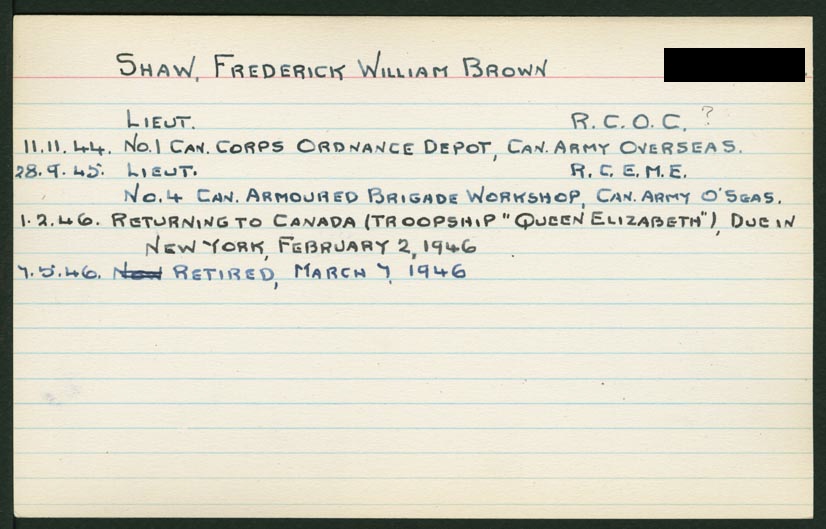 SHAW, FREDERICK WILLIAM BROWN
LIEUT. R.C.O.C. ?
11.11.44. NO.1 CAN. CORPS ORDNANCE DEPOT, CAN. ARMY OVERSEAS.
28.9.45. LIEUT. R.C.E.M.E.
NO.4 CAN. ARMOURED BRIGADE WORKSHOP, CAN. ARMY O'SEAS.
1.2.46. RETURNING TO CANADA (TROOPSHIP "QUEEN ELIZABETH"), DUE IN
NEW YORK, FEBRUARY 2, 1946
7.5.46. RETIRED, MARCH 7, 1946